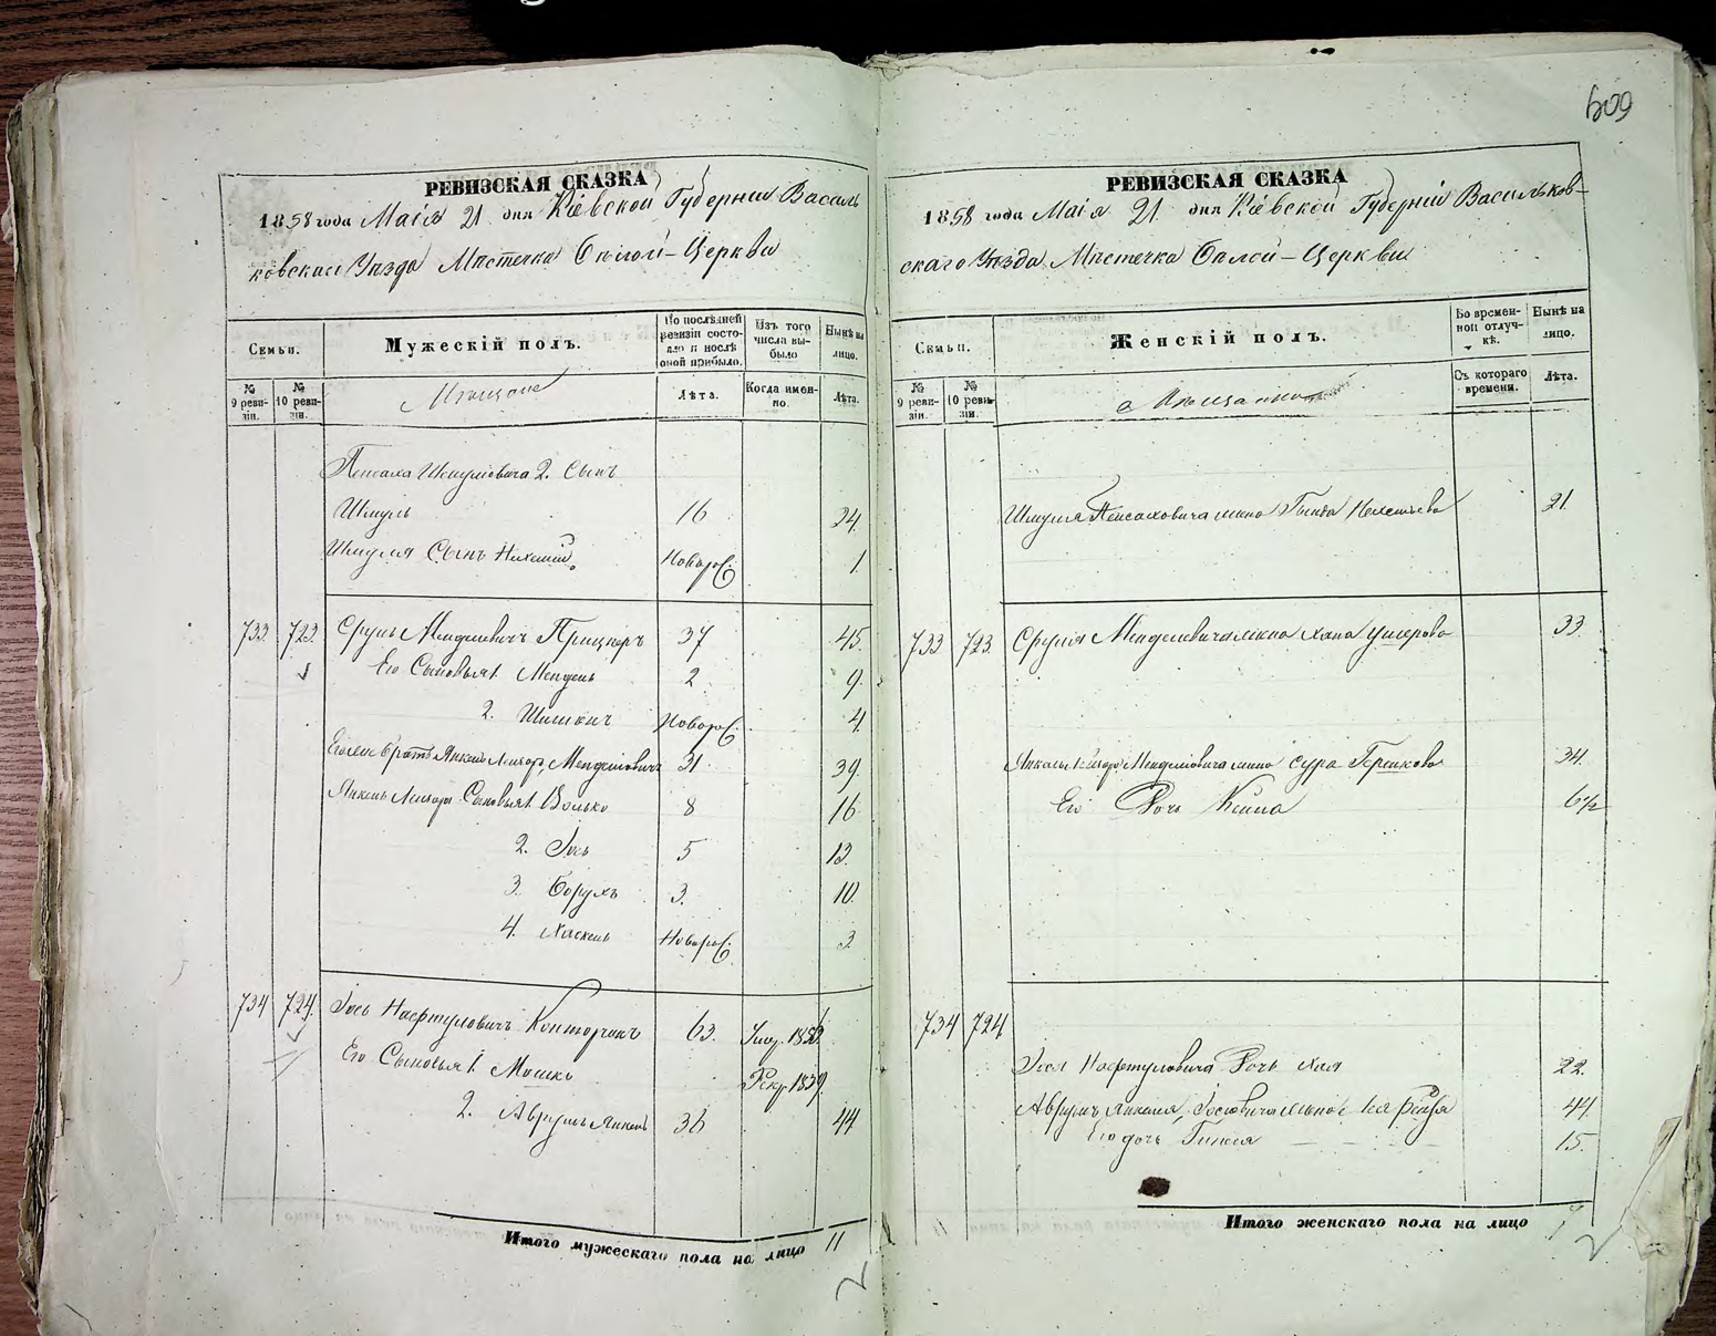 609
РЕВИЗСКАЯ СКАЗКА
1858 года Маія 21 дня Кіевской Губерніи Василь
ковскаго Уѣзда Мѣстечка Бѣлой-Церкви
Семьи.
Мужескій полъ.
По послѣдней ревизіи состояло и послѣ оной прибыло.
Изъ того числа выбыло
Нынѣ на лицо.
№ 9 ревизіи.
№ 10 ревизіи.
Мѣщане
Лѣта.
Когда именно.
Лѣта.
Пейсаха Шмулiовича 2. Сынъ
Шмуль 16 24
Шмуля Сынъ Нихемiя Новор. 1.
733 723 Сруль Менделевичъ 37 45.
Его Сыновья 1. Мендель 2 9.
2. Новор. 4.
Его же братъ Янкель Лейзоръ Менделіовичъ 31 39.
Янкель Лейзора Сыновья 1. Волько 8 16
2. Іось 5 13.
3. Борухъ 3. 10.
4. Хаскель Новор. 3
734 724. Іось Нафтуловичъ 63. Умер. 1853
Его Сыновья 1. Мошко Рекр. 1839.
2. Аврумъ Янкель 36 44
Итого мужескаго пола на лицо 11
РЕВИЗСКАЯ СКАЗКА
1858 года Маія 21 дня Кіевской Губерніи Васильков-
скаго Уѣзда Мѣстечка Бѣлой-Церкви
Семьи.
Женскій полъ.
Во временной отлучкѣ.
Нынѣ на лицо.
№ 9 ревизіи.
№ 10 ревизіи.
Съ котораго времени.
Лѣта.
Шмуля Пейсаховича жена 21.
733 723. Сруля Менделевича жена Хана Ушерова 33
Янкеля Лейзора Менделіовича жена Сура Гершкова 34.
Его Дочь 6½
734 724
Іося Нафтуловича Дочь Хая 22.
Аврумъ Янкеля Іосіовича жена 44
Его дочь 15.
Итого женскаго пола на лицо 7